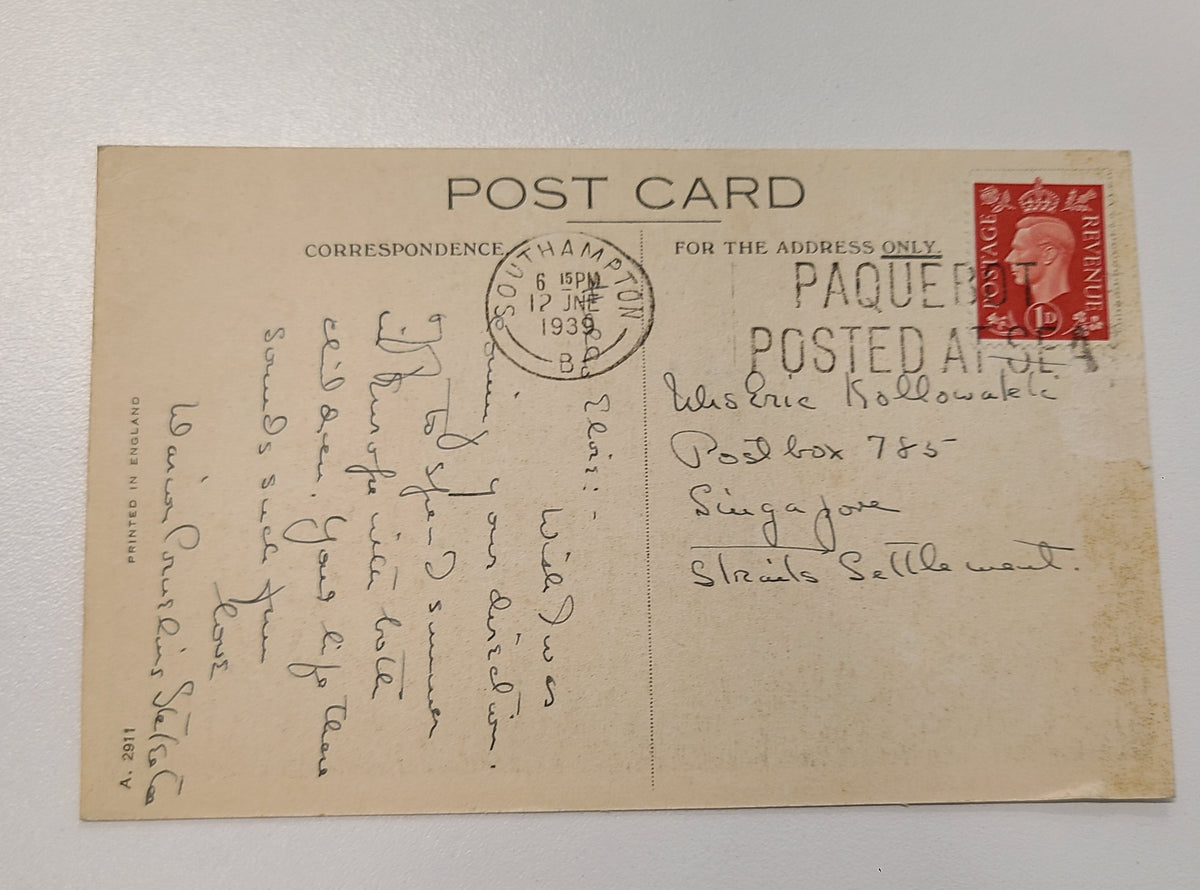 POST CARD
CORRESPONDENCE
FOR THE ADDRESS ONLY.
SOUTHAMPTON
6 15PM
12 JNE
1939
B
PAQUEBOT
POSTED AT SEA
POSTAGE
REVENUE
1D
Eric
Postbox 785
Singapore
Straits Settlement.
Wish I was
your direction.
to spend summer
with both
children. Your life there
sounds such fun
Love
PRINTED IN ENGLAND
A. 2911